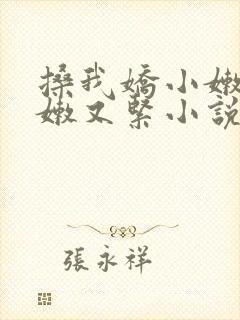 搡我嬌小嫩
嫩又緊小說
張永祥